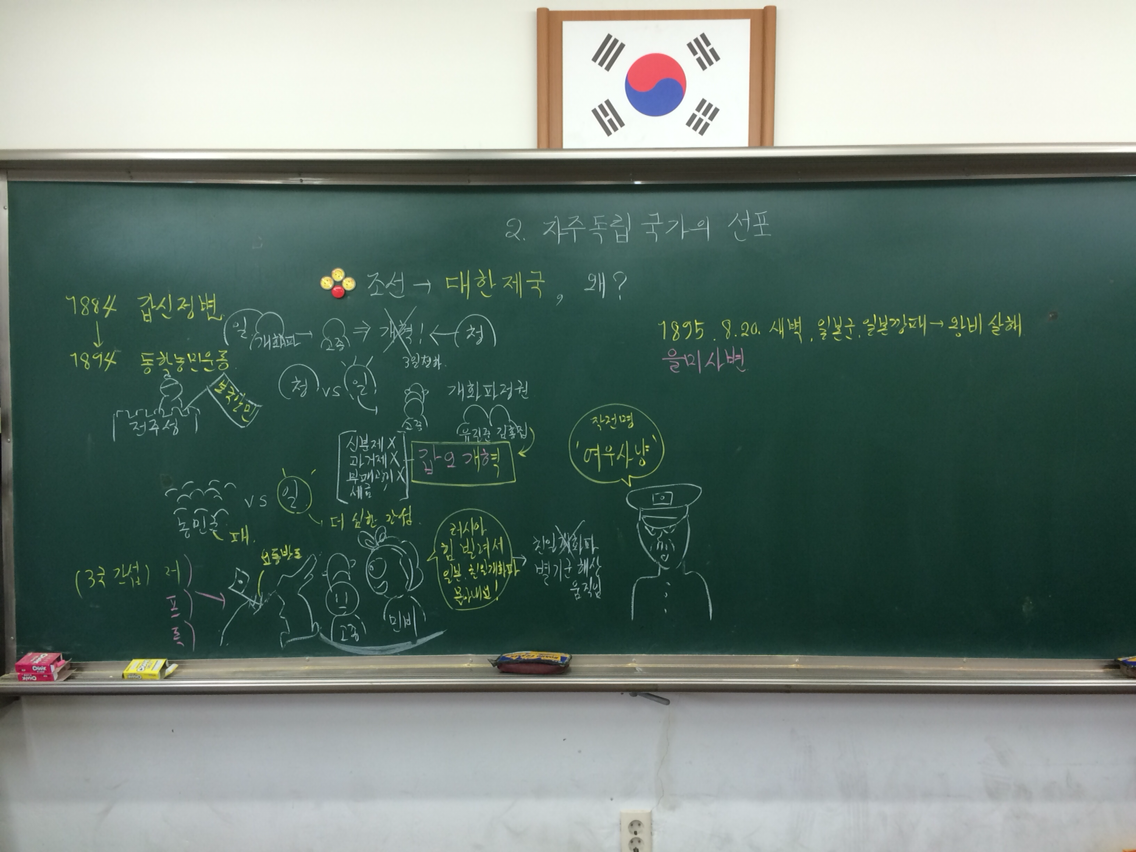 2. 자주독립 국가의 선포
조선 → 대한제국, 왜?
1884 갑신정변
↓
1894 동학농민운동
일 개화파 → 고종 ⇒ 개혁! ← 청
3일천하
청 vs 일
고종
개화파정권
유길준 김홍집
보국안민
전주성
신분제 X
과거제 X
X
세금
갑오개혁
농민군 vs 일
패.
더 심한 간섭.
(3국 간섭) 러
프
독
요동반도
고종
민비
러시아
힘 빌려서
일본, 친일개화파
몰아내요!
친일개화파
별기군 해산
움직임
작전명
'여우사냥'
1895. 8.20. 새벽, 일본군, 일본깡패 → 왕비 살해
을미사변